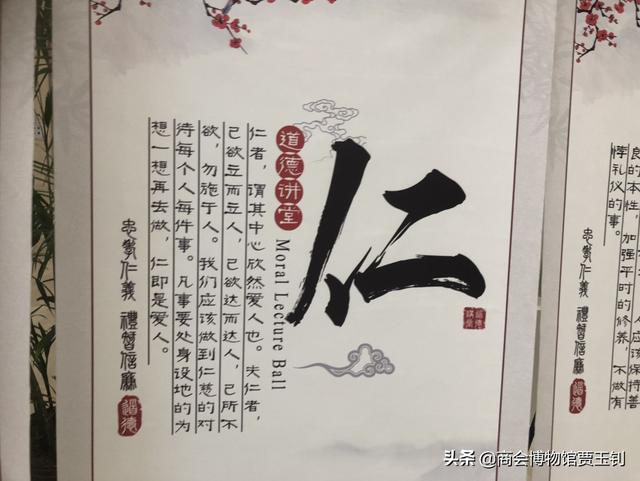 仁
道德讲堂
Moral Lecture Ball
仁者，谓其中心欣然爱人也。夫仁者，
己欲立而立人，己欲达而达人，己所不
欲，勿施于人。我们应该做到仁慈的对
待每个人每件事。凡事要处身设地的为
想一想再去做，仁即是爱人。
忠孝仁義 禮智信廉 道德
道德讲堂
人应该保持善
良的本性，加强平时的修养，不做有
悖礼仪的事。
忠孝仁義 禮智信廉 道德
头条 @商会博物馆贾玉钊